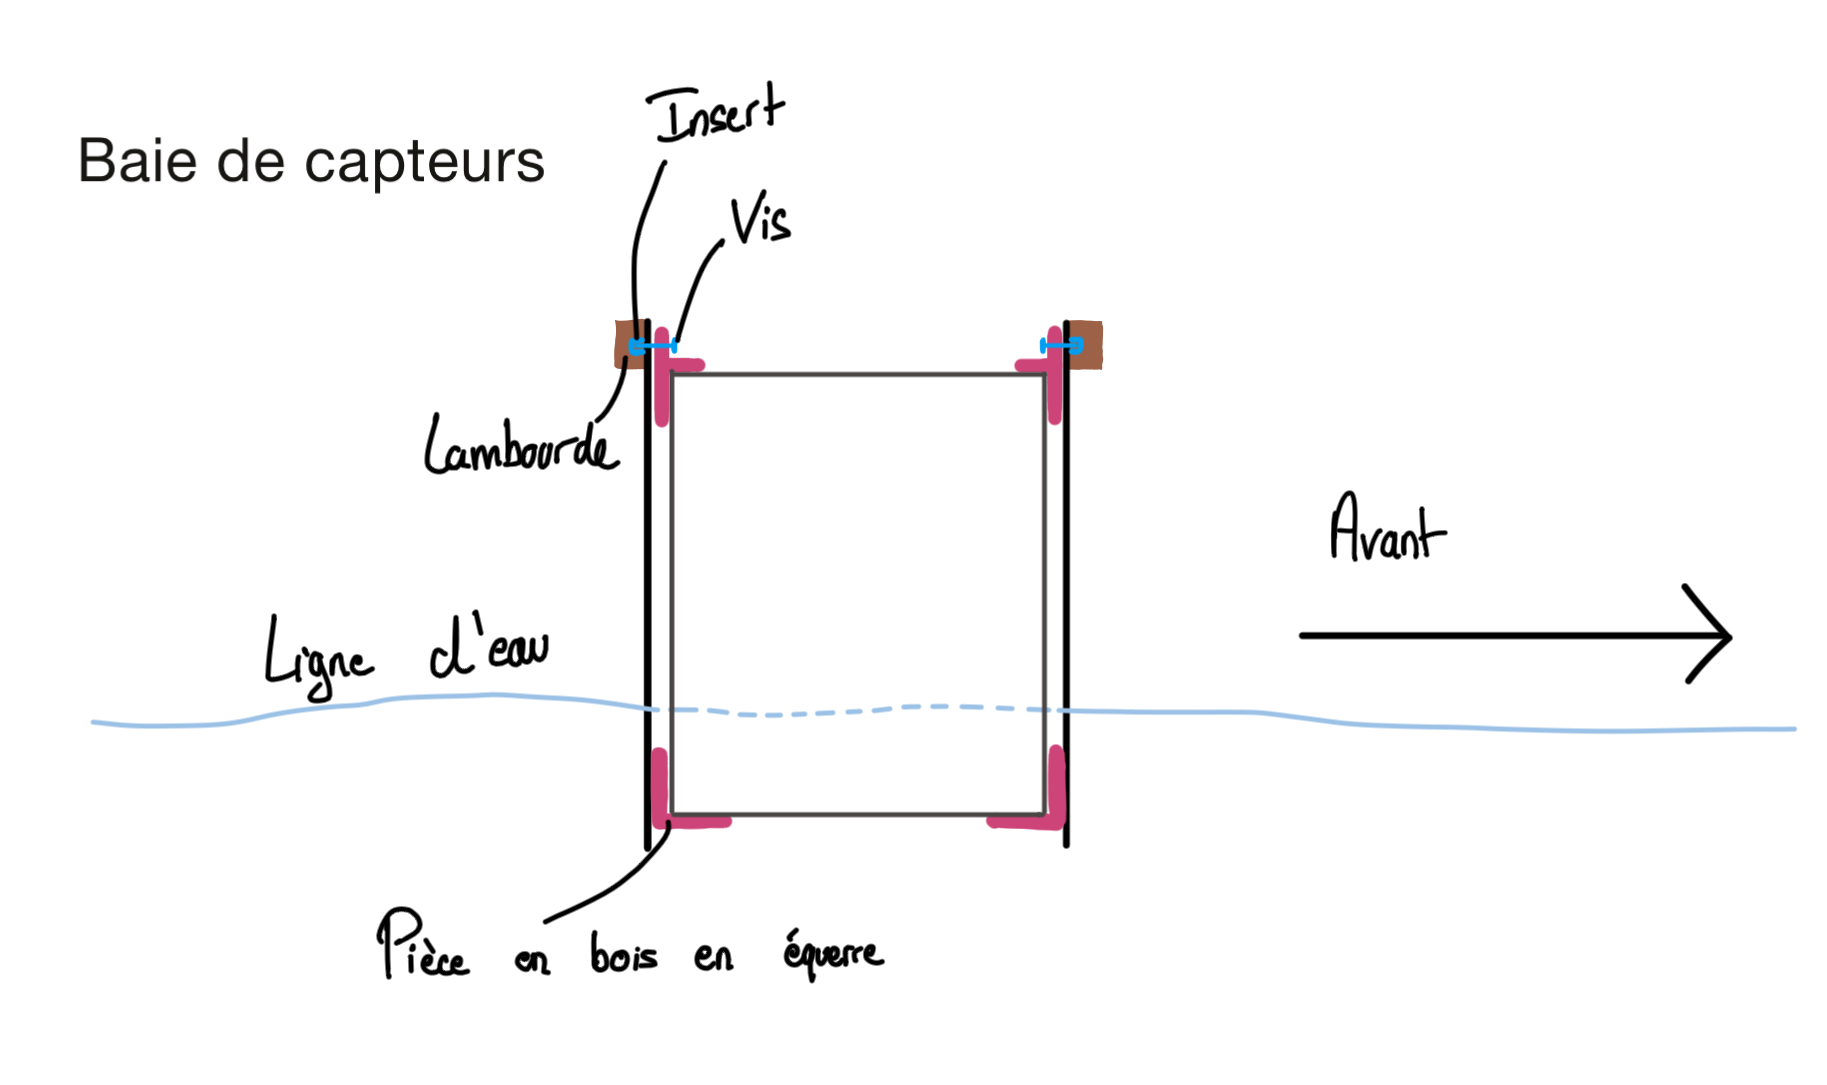 Insert
Baie de capteurs
Vis
Lambourde
Avant
Ligne d'eau
Pièce en bois en équerre